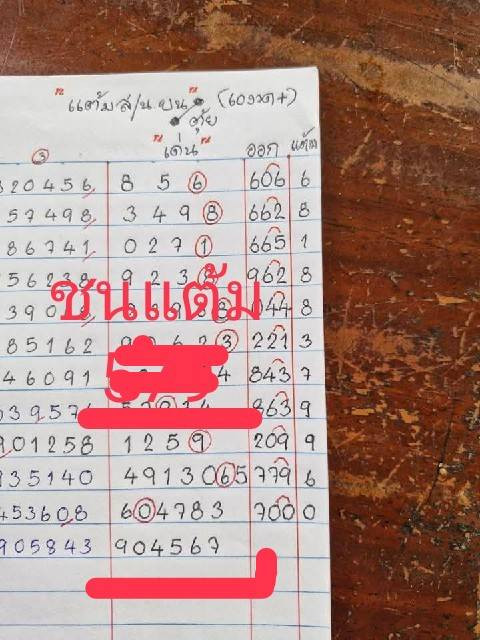 "แต้ม ส/น บน" (เองวด+)
ตุ้ย
3 "เด่น" ออก แต้ม
320456 8 5 6 606 6
57498 3 4 9 8 662 8
86741 0 2 7 1 665 1
56238 9 2 3 8 962 8
ชนแต้ม
3908 044 8
85162 3 221 3
46091 4 843 7
573
63957 863 9
901258 1 2 5 9 209 9
935140 4913065 779 6
453608 604783 700 0
905843 904567